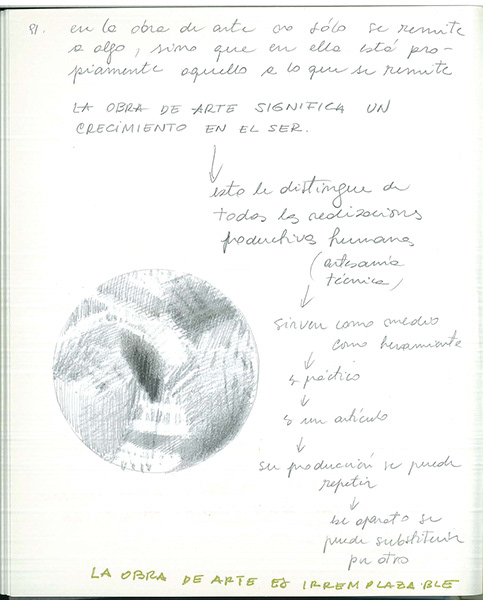 91. en la obra de arte no sólo se remite
a algo, sino que en ella está pro-
piamente aquello a lo que se remite
LA OBRA DE ARTE SIGNIFICA UN
CRECIMIENTO EN EL SER.
esto le distingue de
todas las realizaciones
productivas humanas
(artesanía
técnica)
sirven como medio
como herramienta
es práctico
es un artículo
su producción se puede
repetir
ese aparato se
puede substituir
por otro
LA OBRA DE ARTE ES IRREMPLAZABLE